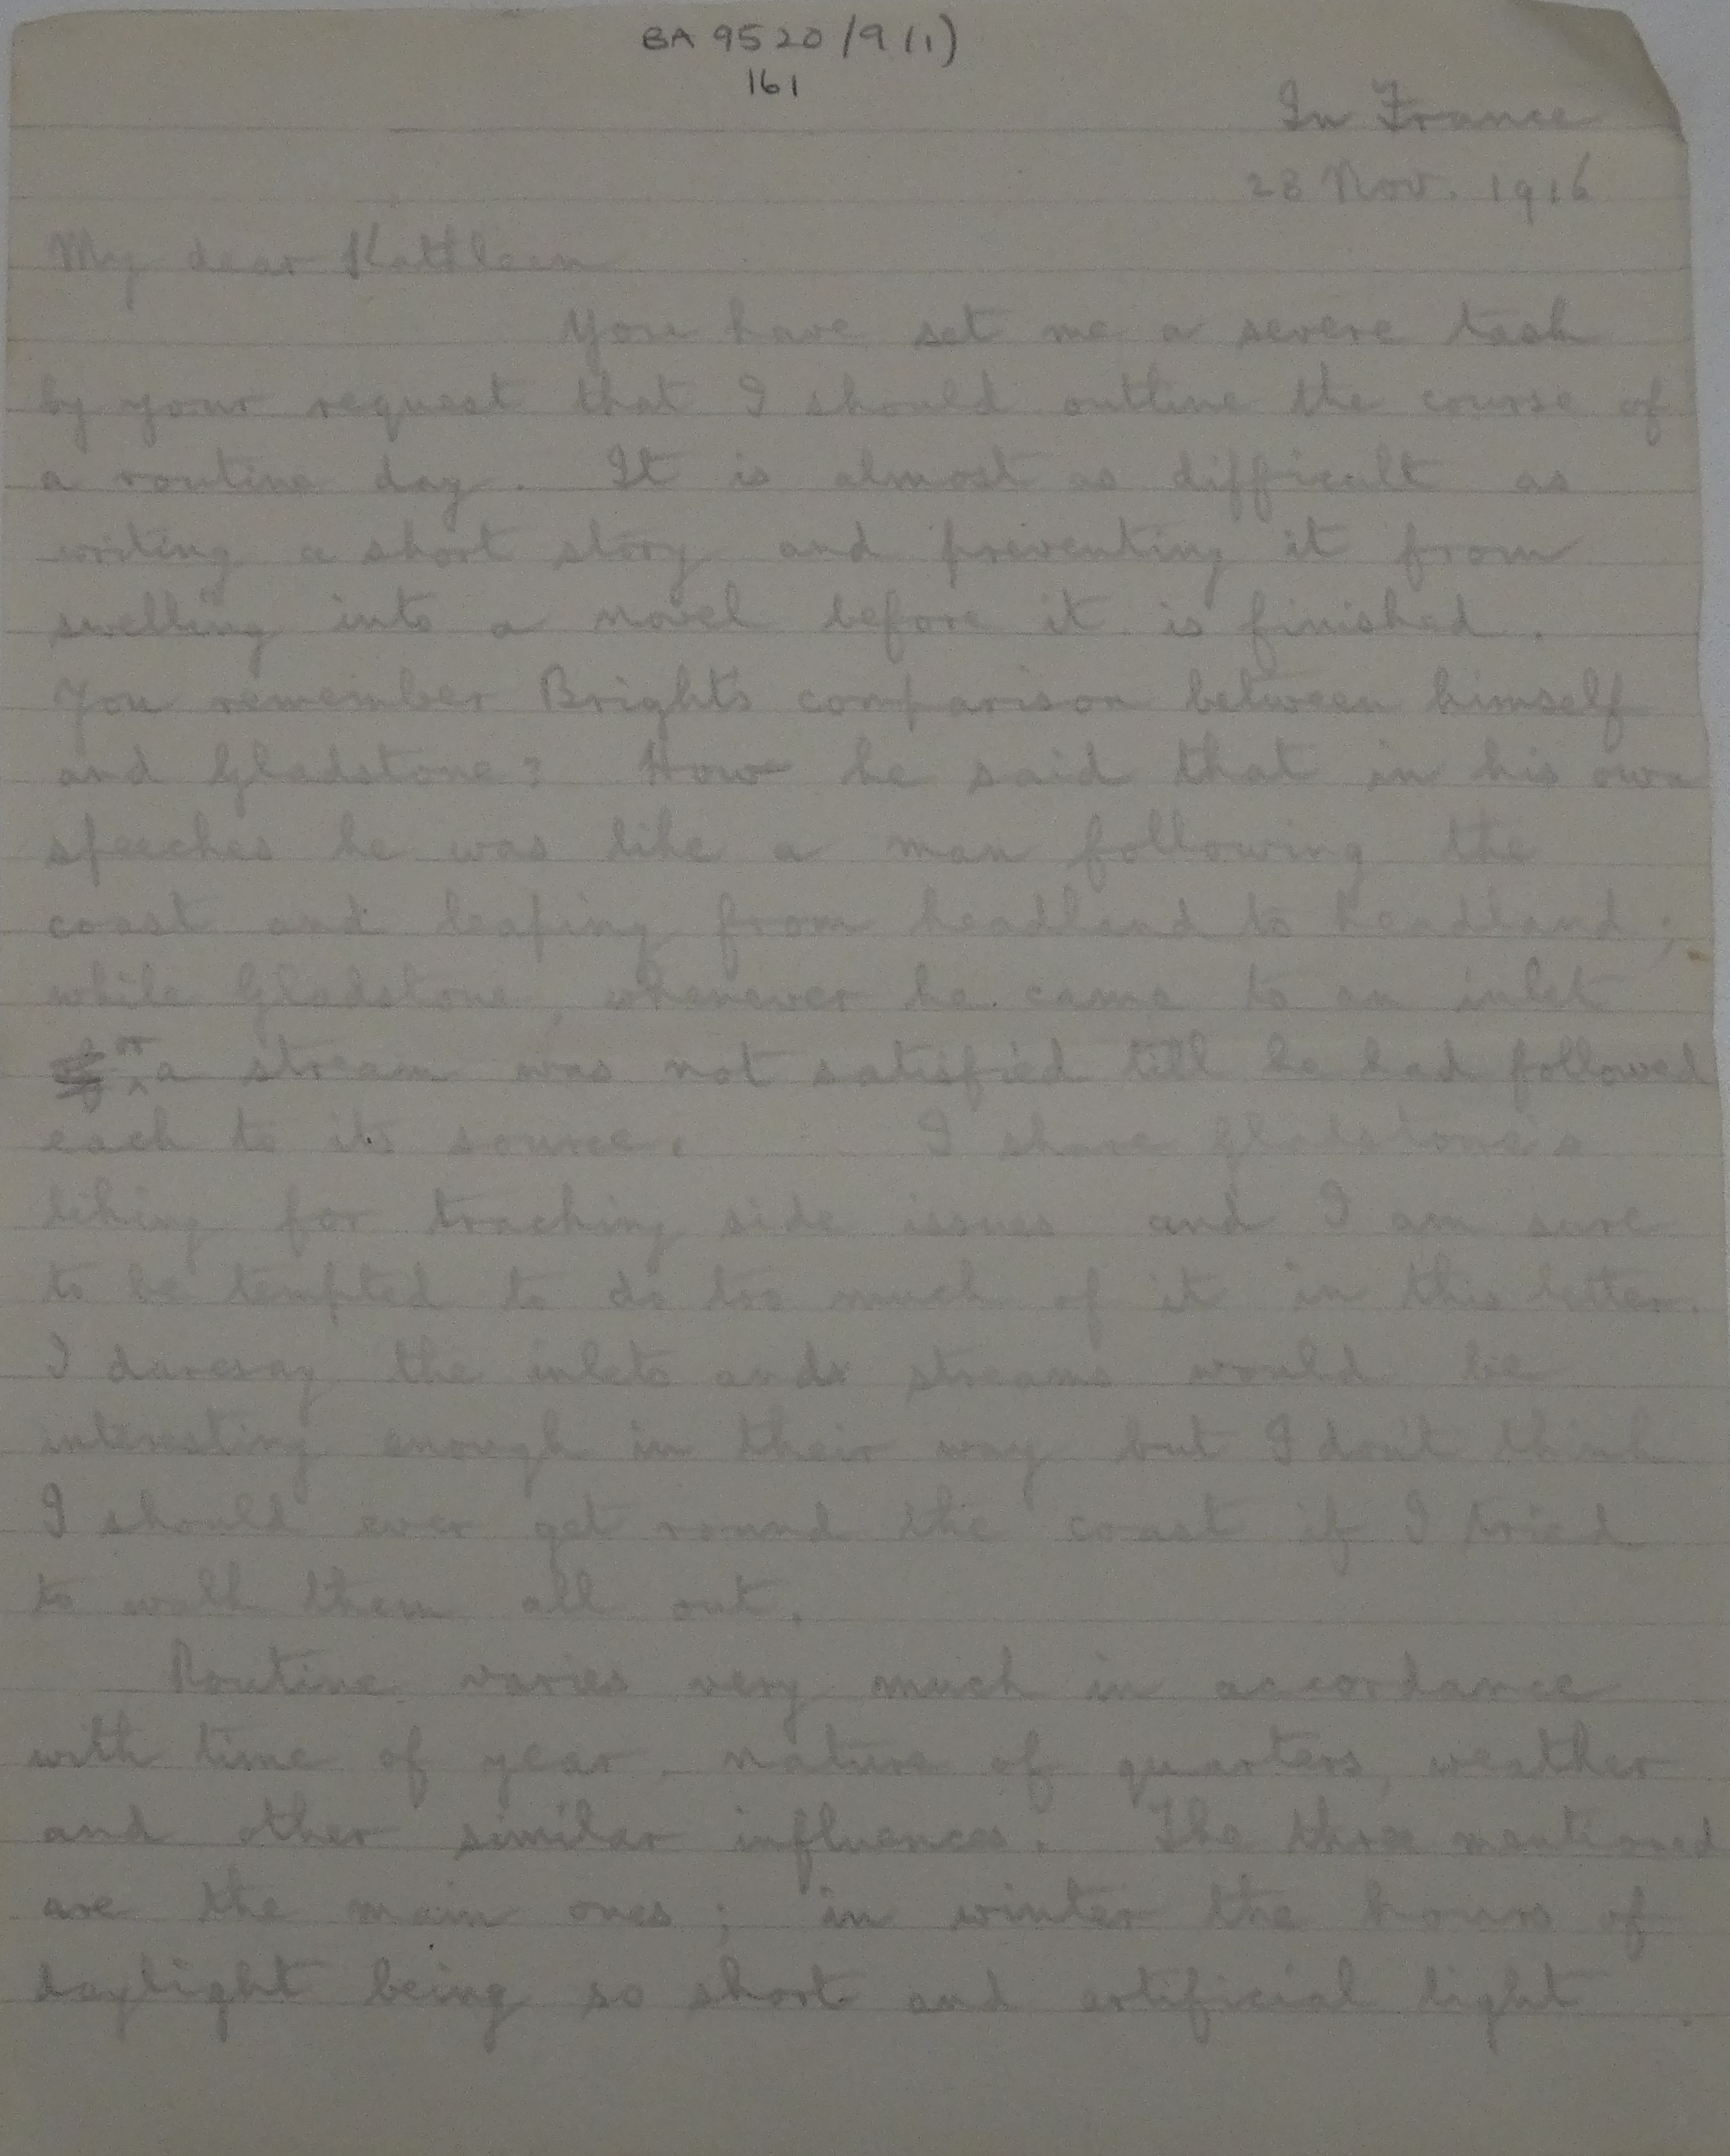 BA 9520/9(1)
161
In France
28 Nov. 1916
My dear Kathleen
You have set me a severe task
by your request that I should outline the course of
a routine day. It is almost as difficult as
writing a short story and preventing it from
swelling into a novel before it is finished.
You remember Bright's comparison between himself
and Gladstone? How he said that in his own
speeches he was like a man following the
coast and leaping from headland to headland;
while Gladstone, whenever he came to an inlet
or a stream was not satisfied till he had followed
each to its source. I share Gladstone's
liking for tracking side issues and I am sure
to be tempted to do too much of it in this letter.
I daresay the inlets and streams would be
interesting enough in their way but I don't think
I should ever get round the coast if I tried
to walk them all out.
Routine varies very much in accordance
with time of year, nature of quarters, weather
and other similar influences. The three mentioned
are the main ones; in winter the hours of
daylight being so short and artificial light